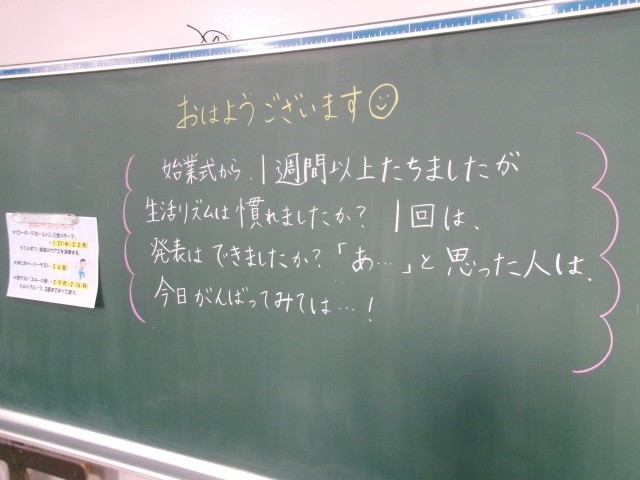 おはようございます
始業式から、1週間以上たちましたが
生活リズムは慣れましたか？ 1回は、
発表はできましたか？「あ…」と思った人は、
今日がんばってみては…！